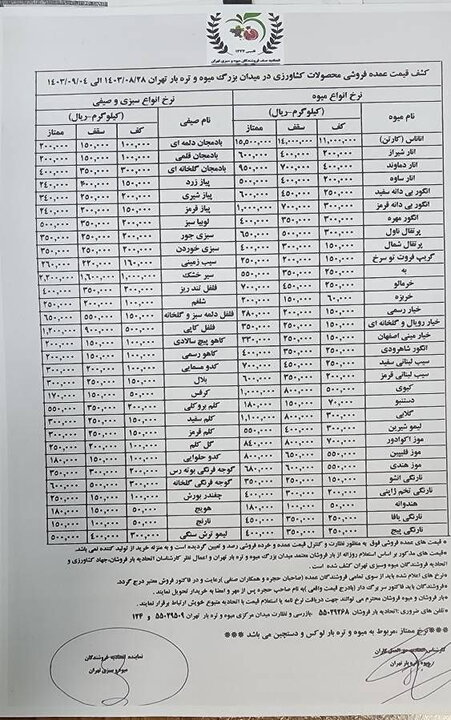 تاسیس ۱۳۲۲
اتحادیه صنف فروشندگان میوه و سبزی تهران
کشف قیمت عمده فروشی محصولات کشاورزی در میدان بزرگ میوه و تره بار تهران ۱۴۰۳/۰۸/۲۸ الی ۱۴۰۳/۰۹/۰۴
نرخ انواع میوه نرخ انواع سبزی و صیفی
نام میوه (کیلوگرم-ریال) نام صیفی (کیلوگرم-ریال)
کف سقف ممتاز کف سقف ممتاز
آناناس (کارتن) ۱۱,۰۰۰,۰۰۰ ۱۴,۰۰۰,۰۰۰ ۱۵,۵۰۰,۰۰۰ بادمجان دلمه ای ۱۰۰,۰۰۰ ۱۵۰,۰۰۰ ۲۰۰,۰۰۰
انار شیراز ۲۰۰,۰۰۰ ۴۰۰,۰۰۰ ۶۰۰,۰۰۰ بادمجان قلمی ۱۰۰,۰۰۰ ۱۵۰,۰۰۰ ۲۰۰,۰۰۰
انار دماوند ۴۰۰,۰۰۰ ۷۰۰,۰۰۰ ۹۵۰,۰۰۰ بادمجان گلخانه ای ۳۰۰,۰۰۰ ۳۵۰,۰۰۰ ۴۰۰,۰۰۰
انار ساوه ۲۰۰,۰۰۰ ۴۰۰,۰۰۰ ۵۰۰,۰۰۰ پیاز زرد ۱۵۰,۰۰۰ ۲۰۰,۰۰۰ ۲۴۰,۰۰۰
انگور بی دانه سفید ۲۵۰,۰۰۰ ۴۵۰,۰۰۰ ۶۰۰,۰۰۰ پیاز شیری ۱۵۰,۰۰۰ ۲۰۰,۰۰۰ ۲۴۰,۰۰۰
انگور بی دانه قرمز ۳۰۰,۰۰۰ ۷۰۰,۰۰۰ ۱,۰۰۰,۰۰۰ پیاز قرمز ۱۵۰,۰۰۰ ۲۰۰,۰۰۰ ۲۴۰,۰۰۰
انگور مهره ۲۰۰,۰۰۰ ۳۰۰,۰۰۰ ۴۰۰,۰۰۰ لوبیا سبز ۲۰۰,۰۰۰ ۳۵۰,۰۰۰ ۵۰۰,۰۰۰
پرتقال ناول ۳۰۰,۰۰۰ ۵۰۰,۰۰۰ ۶۵۰,۰۰۰ سبزی جور ۱۵۰,۰۰۰ ۲۵۰,۰۰۰ ۳۵۰,۰۰۰
پرتقال شمال ۱۵۰,۰۰۰ ۳۰۰,۰۰۰ ۴۰۰,۰۰۰ سبزی خوردن ۱۵۰,۰۰۰ ۲۵۰,۰۰۰ ۳۵۰,۰۰۰
گریپ فروت تو سرخ ۱۵۰,۰۰۰ سیب زمینی ۱۶۰,۰۰۰ ۲۲۰,۰۰۰ ۲۶۰,۰۰۰
به ۲۵۰,۰۰۰ ۳۵۰,۰۰۰ ۵۵۰,۰۰۰ سیر خشک ۱,۰۰۰,۰۰۰ ۱,۶۰۰,۰۰۰ ۲,۲۰۰,۰۰۰
خرمالو ۲۵۰,۰۰۰ ۴۵۰,۰۰۰ ۷۰۰,۰۰۰ فلفل تند ریز ۲۰۰,۰۰۰ ۳۵۰,۰۰۰ ۴۰۰,۰۰۰
خربزه ۶۰,۰۰۰ ۱۵۰,۰۰۰ ۲۰۰,۰۰۰ شلغم ۱۰۰,۰۰۰ ۲۰۰,۰۰۰ ۲۵۰,۰۰۰
خیار رسمی ۱۵۰,۰۰۰ ۲۰۰,۰۰۰ ۲۸۰,۰۰۰ فلفل دلمه سبز و گلخانه ۱۵۰,۰۰۰ ۵۵۰,۰۰۰ ۶۵۰,۰۰۰
خیار رویال و گلخانه ای ۲۰۰,۰۰۰ ۳۵۰,۰۰۰ فلفل کاپی ۵۰۰,۰۰۰ ۹۰۰,۰۰۰ ۱,۲۰۰,۰۰۰
خیار مینی اصفهان ۱۵۰,۰۰۰ ۲۵۰,۰۰۰ ۳۳۰,۰۰۰ کاهو پیچ سالادی ۱۰۰,۰۰۰ ۱۵۰,۰۰۰ ۲۰۰,۰۰۰
انگور شاهرودی ۲۵۰,۰۰۰ ۳۰۰,۰۰۰ ۴۰۰,۰۰۰ کاهو رسمی ۱۰۰,۰۰۰ ۱۵۰,۰۰۰ ۲۰۰,۰۰۰
سیب لبنانی سفید ۲۰۰,۰۰۰ ۴۵۰,۰۰۰ ۷۰۰,۰۰۰ کدو مسمایی ۱۰۰,۰۰۰ ۲۰۰,۰۰۰ ۳۰۰,۰۰۰
سیب لبنانی قرمز ۲۰۰,۰۰۰ ۳۵۰,۰۰۰ ۶۰۰,۰۰۰ بلال ۱۵۰,۰۰۰ ۲۵۰,۰۰۰ ۳۰۰,۰۰۰
کیوی ۵۰۰,۰۰۰ ۸۰۰,۰۰۰ ۱,۰۰۰,۰۰۰ کرفس ۵۰,۰۰۰ ۱۵۰,۰۰۰ ۱۷۰,۰۰۰
دستنبو ۷۰,۰۰۰ ۱۵۰,۰۰۰ ۱۸۰,۰۰۰ کلم بروکلی ۲۰۰,۰۰۰ ۳۵۰,۰۰۰ ۵۵۰,۰۰۰
گلابی ۳۰۰,۰۰۰ ۸۰۰,۰۰۰ ۱,۱۰۰,۰۰۰ کلم سفید ۱۵۰,۰۰۰ ۲۵۰,۰۰۰ ۳۰۰,۰۰۰
لیمو شیرین ۳۰۰,۰۰۰ ۴۰۰,۰۰۰ ۵۵۰,۰۰۰ کلم قرمز ۱۵۰,۰۰۰ ۲۵۰,۰۰۰ ۳۰۰,۰۰۰
موز اکوادور ۷۰۰,۰۰۰ ۸۰۰,۰۰۰ ۸۴۰,۰۰۰ گل کلم ۱۵۰,۰۰۰ ۲۵۰,۰۰۰ ۳۰۰,۰۰۰
موز فلیپین ۵۰۰,۰۰۰ ۶۵۰,۰۰۰ ۶۸۰,۰۰۰ کدو حلوایی ۱۰۰,۰۰۰ ۱۵۰,۰۰۰ ۱۸۰,۰۰۰
موز هندی ۵۰۰,۰۰۰ ۶۵۰,۰۰۰ ۶۸۰,۰۰۰ گوجه فرنگی بوته رس ۲۰۰,۰۰۰ ۳۰۰,۰۰۰ ۳۵۰,۰۰۰
نارنگی انشو ۱۵۰,۰۰۰ ۲۵۰,۰۰۰ ۳۵۰,۰۰۰ گوجه فرنگی گلخانه ۳۰۰,۰۰۰ ۵۰۰,۰۰۰ ۶۰۰,۰۰۰
نارنگی تخم ژاپنی ۲۰۰,۰۰۰ ۳۰۰,۰۰۰ ۴۰۰,۰۰۰ چغندر بورش ۱۰۰,۰۰۰ ۱۵۰,۰۰۰ ۲۵۰,۰۰۰
هندوانه ۵۰,۰۰۰ ۱۰۰,۰۰۰ ۱۸۰,۰۰۰ هویج ۱۰۰,۰۰۰ ۱۵۰,۰۰۰ ۱۸۰,۰۰۰
نارنگی یافا ۲۵۰,۰۰۰ ۳۵۰,۰۰۰ ۴۵۰,۰۰۰ نارنج ۱۰۰,۰۰۰ ۱۵۰,۰۰۰ ۲۰۰,۰۰۰
نارنگی پیج ۲۵۰,۰۰۰ ۳۵۰,۰۰۰ ۴۰۰,۰۰۰ لیمو ترش سنگی ۳۰۰,۰۰۰ ۴۰۰,۰۰۰ ۵۰۰,۰۰۰
*قیمت های عمده فروشی فوق به منظور نظارت و کنترل قیمت عمده و خرده فروشی رصد و تعیین گردیده است و به منزله خرید از تولید کننده نمی باشد.
*قیمت های مذکور بر اساس استعلام روزانه از بار فروشان معتمد میدان بزرگ میوه و تره بار تهران و اعمال نظر کارشناسان اتحادیه بارفروشان، جهاد کشاورزی و
اتحادیه فروشندگان میوه و سبزی تهران کشف شده است.
*نرخ های اعلام شده باید از سوی تمامی فروشندگان عمده (صاحبان حجره و همکاران صفی) رعایت و در فاکتور فروش معتبر درج گردد.
*فروشندگان باید فاکتور سر برگ دار (بادرج قیمت واقعی) به نام صاحب حجره پس از مهر و امضا به خریدار تحویل نمایند.
*بارفروشان و میوه فروشان محترم می توانند جهت دریافت نرخ نامه یا استعلام قیمت با اتحادیه متبوع خویش ارتباط برقرار نمایند.
*تلفن های ضروری: اتحادیه بار فروشان ۵۵۰۲۹۲۶۸ بازرسی و نظارت میدان مرکزی میوه و تره بار تهران ۵۵۰۲۹۵۰۹ و ۱۲۴
***نرخ ممتاز، مربوط به میوه و تره بار لوکس و دستچین می باشد***
نماینده اتحادیه فروشندگان
میوه و سبزی تهران